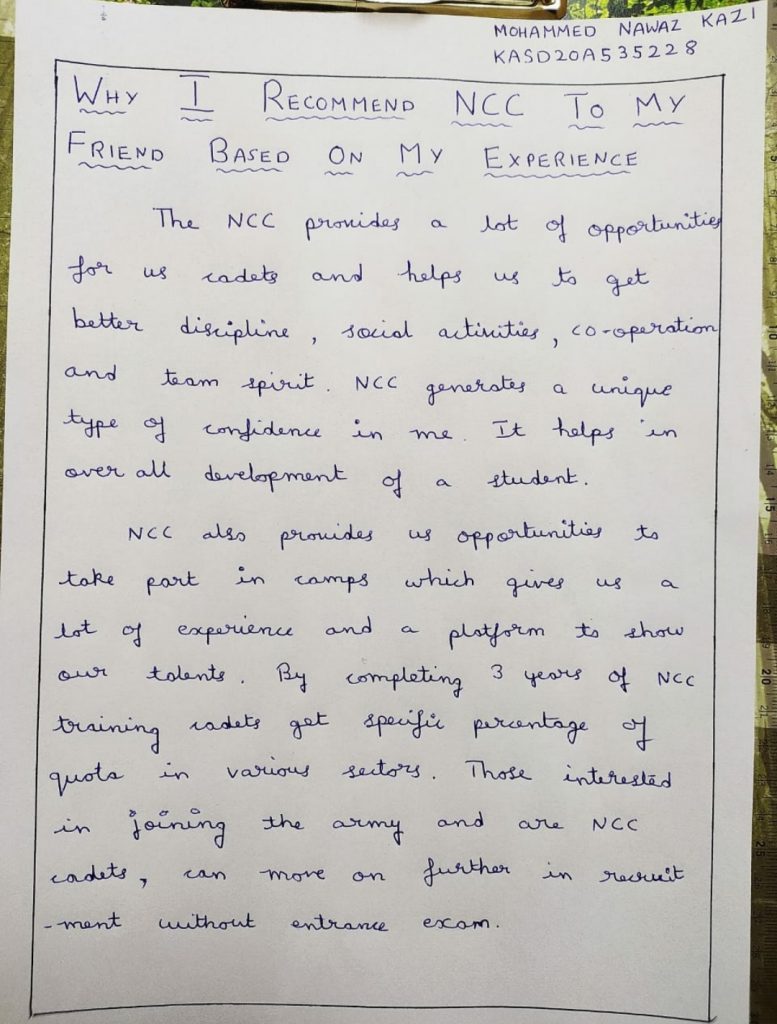 MOHAMMED NAWAZ KAZI
KASD20A535228
WHY I RECOMMEND NCC TO MY
FRIEND BASED ON MY EXPERIENCE
The NCC provides a lot of opportunities
for us cadets and helps us to get
better discipline, social activities, co-operation
and team spirit. NCC generates a unique
type of confidence in me. It helps in
over all development of a student.
NCC also provides us opportunities to
take part in camps which gives us a
lot of experience and a platform to show
our talents. By completing 3 years of NCC
training cadets get specific percentage of
quota in various sectors. Those interested
in joining the army and are NCC
cadets, can move on further in recruit
-ment without entrance exam.